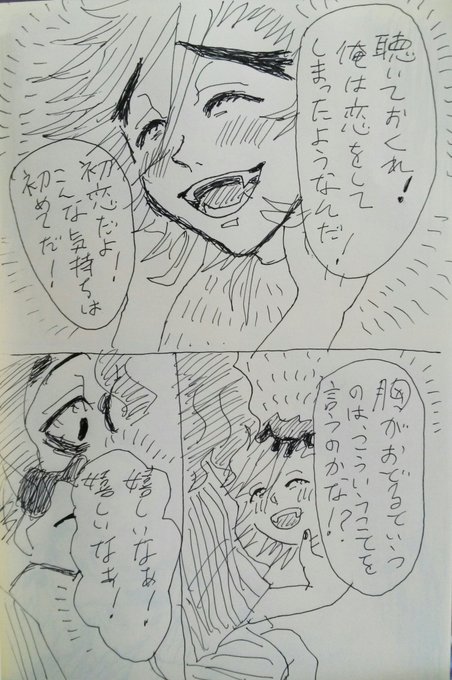 聴いておくれ！
俺は恋をして
しまったようなんだ！
初恋だよ！
こんな気持ちは
初めてだ！
胸がおどるていう
のはこういうことを
言うのかな！？
嬉しいなぁー！
嬉しいなぁー！